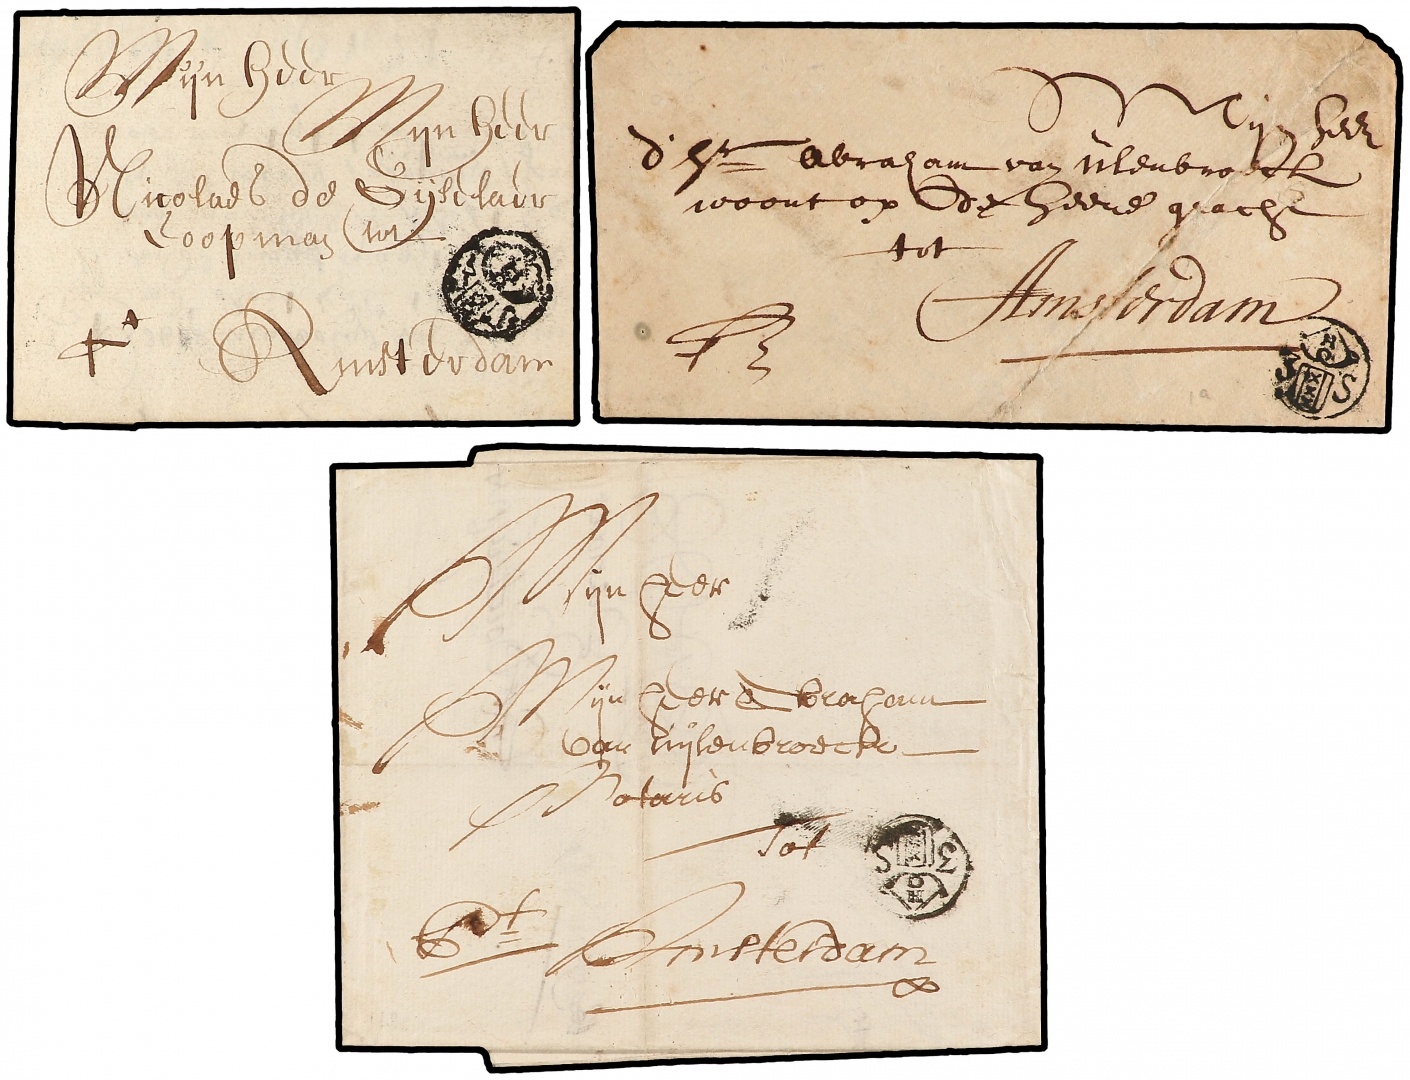 Mijn Heer
Mijn Heer
Nicolaes de
Coopman tot
Amsterdam
Mijn heer
d' Hr Abraham van Uÿlenbroeck
woont op de heere gracht
tot
Amsterdam
3 S
HO
XXX
Mijn Heer
Mijn Heer Abraham
van Uijlenbroeck
Notaris
Tot
Pt Amsterdam
S XXX 3
HO